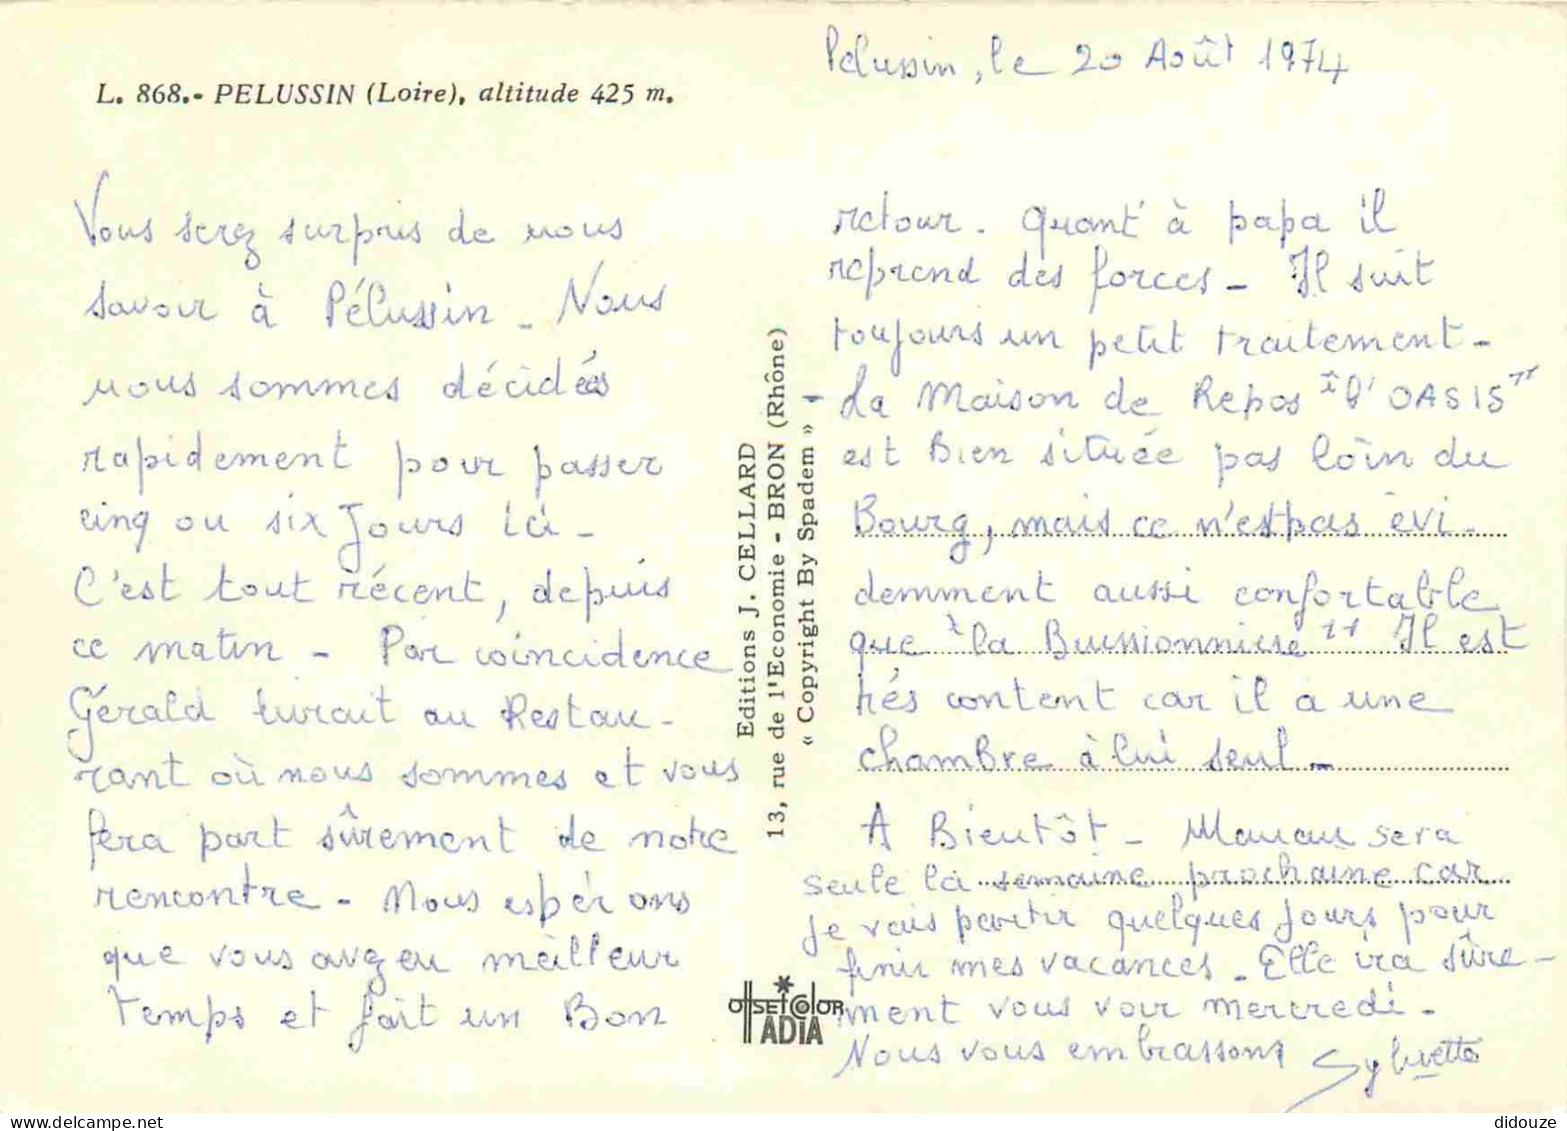 L. 868.- PELUSSIN (Loire), altitude 425 m.
Pelussin, le 20 Août 1974
Vous serez surpris de nous
savoir à Pélussin - Nous
nous sommes décidés
rapidement pour passer
cinq ou six Jours ici -
C'est tout récent, depuis
ce matin - Par coincidence
Gérald livrait au Restau-
rant où nous sommes et vous
fera part sûrement de notre
rencontre - Nous espérons
que vous avez eu meilleur
temps et fait un Bon
retour - Quant à papa il
reprend des forces - Il suit
toujours un petit traitement -
La Maison de Repos "l'OASIS"
est Bien située pas loin du
Bourg, mais ce n'est pas évi-
demment aussi confortable
que "la Buissionnière" Il est
très content car il a une
chambre à lui seul -
A Bientôt - Maman sera
seule la semaine prochaine car
je vais partir quelques Jours pour
finir mes vacances - Elle ira sûre-
ment vous voir mercredi -
Nous vous embrassons Sylvette
Editions J. CELLARD
13, rue de l'Economie - BRON (Rhône)
« Copyright By Spadem » -
OffSEt COlOR
ADIA
didouze